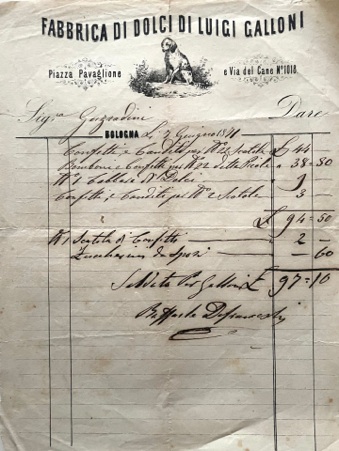 FABBRICA DI DOLCI DI LUIGI GALLONI
Piazza Pavaglione
e Via del Cane Nº 1018
Sig.ra Gozzadini Dare
BOLOGNA Li 2 Giugno 1871
Confetti e Canditi per Nº 12 Scatole £ 44 —
Bomboni e Confetti per Nº 12 dette 38=50
Nº 1 Dolci 9
Confetti e Canditi per Nº 2 Scatole 3
£ 94=50
Nº 1 Scatola di Confetti 2 —
Zuccherini da Sposi — 60
Saldato Per Galloni £ 97=10
Raffaele